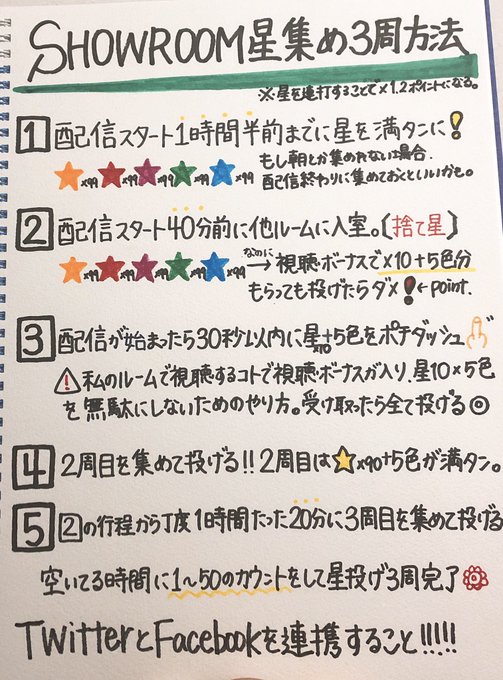 SHOWROOM星集め3周方法
※星を連打することで×1.2ポイントになる。
1 配信スタート1時間半前までに星を満タンに!
もし朝とか集めれない場合、
配信終わりに集めておくといいかも。
×99 ×99 ×99 ×99 ×99
2 配信スタート40分前に他ルームに入室。〔捨て星〕
×99 ×99 ×99 ×99 ×99 なのに→視聴ボーナスで×10+5色分
もらっても投げたらダメ!←point.
3 配信が始まったら30秒以内に星×10+5色をポチダッシュ
⚠私のルームで視聴するコトで視聴ボーナスが入り、星10×5色
を無駄にしないためのやり方。受け取ったら全て投げる◎
4 2周目を集めて投げる!!2周目は★×90+5色が満タン。
5 2の行程から丁度1時間たった20分に3周目を集めて投げる
空いてる時間に1~50のカウントをして星投げ3周完了
TwitterとFacebookを連携すること!!!!!